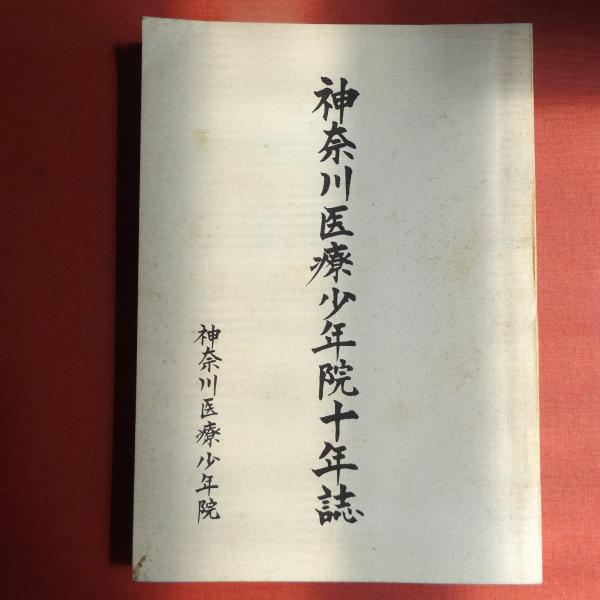 神奈川医療少年院十年誌
神奈川医療少年院